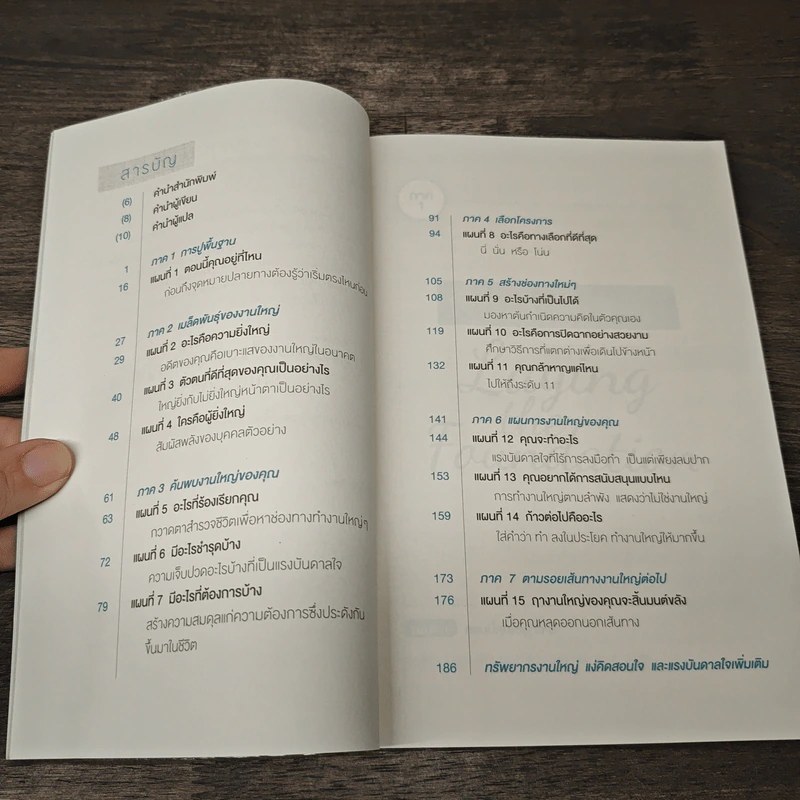 สารบัญ
(6) คำนำสำนักพิมพ์
(8) คำนำผู้เขียน
(10) คำนำผู้แปล
1 ภาค 1 การปูพื้นฐาน
16 แผนที่ 1 ตอนนี้คุณอยู่ที่ไหน
ก่อนถึงจุดหมายปลายทางต้องรู้ว่าเริ่มตรงไหนก่อน
27 ภาค 2 เมล็ดพันธุ์ของงานใหญ่
29 แผนที่ 2 อะไรคือความยิ่งใหญ่
อดีตของคุณคือเบาะแสของงานใหญ่ในอนาคต
40 แผนที่ 3 ตัวตนที่ดีที่สุดของคุณเป็นอย่างไร
ใหญ่ยิ่งกับไม่ยิ่งใหญ่หน้าตาเป็นอย่างไร
48 แผนที่ 4 ใครคือผู้ยิ่งใหญ่
สัมผัสพลังของบุคคลตัวอย่าง
61 ภาค 3 ค้นพบงานใหญ่ของคุณ
63 แผนที่ 5 อะไรที่ร้องเรียกคุณ
กวาดตาสำรวจชีวิตเพื่อหาช่องทางทำงานใหญ่ๆ
72 แผนที่ 6 มีอะไรชำรุดบ้าง
ความเจ็บปวดอะไรบ้างที่เป็นแรงบันดาลใจ
79 แผนที่ 7 มีอะไรที่ต้องการบ้าง
สร้างความสมดุลแก่ความต้องการซึ่งประดังกัน
ขึ้นมาในชีวิต
ภาค
91 ภาค 4 เลือกโครงการ
94 แผนที่ 8 อะไรคือทางเลือกที่ดีที่สุด
นี่ นั่น หรือ โน่น
105 ภาค 5 สร้างช่องทางใหม่ๆ
108 แผนที่ 9 อะไรบ้างที่เป็นไปได้
มองหาต้นกำเนิดความคิดในตัวคุณเอง
119 แผนที่ 10 อะไรคือการปิดฉากอย่างสวยงาม
ศึกษาวิธีการที่แตกต่างเพื่อเดินไปข้างหน้า
132 แผนที่ 11 คุณกล้าหาญแค่ไหน
ไปให้ถึงระดับ 11
141 ภาค 6 แผนการงานใหญ่ของคุณ
144 แผนที่ 12 คุณจะทำอะไร
แรงบันดาลใจที่ไร้การลงมือทำ เป็นแต่เพียงลมปาก
153 แผนที่ 13 คุณอยากได้การสนับสนุนแบบไหน
การทำงานใหญ่ตามลำพัง แสดงว่าไม่ใช่งานใหญ่
159 แผนที่ 14 ก้าวต่อไปคืออะไร
ใส่คำว่า ทำ ลงในประโยค ทำงานใหญ่ให้มากขึ้น
173 ภาค 7 ตามรอยเส้นทางงานใหญ่ต่อไป
176 แผนที่ 15 ฤางานใหญ่ของคุณจะสิ้นมนต์ขลัง
เมื่อคุณหลุดออกนอกเส้นทาง
186 ทรัพยากรงานใหญ่ แง่คิดสอนใจ และแรงบันดาลใจเพิ่มเติม